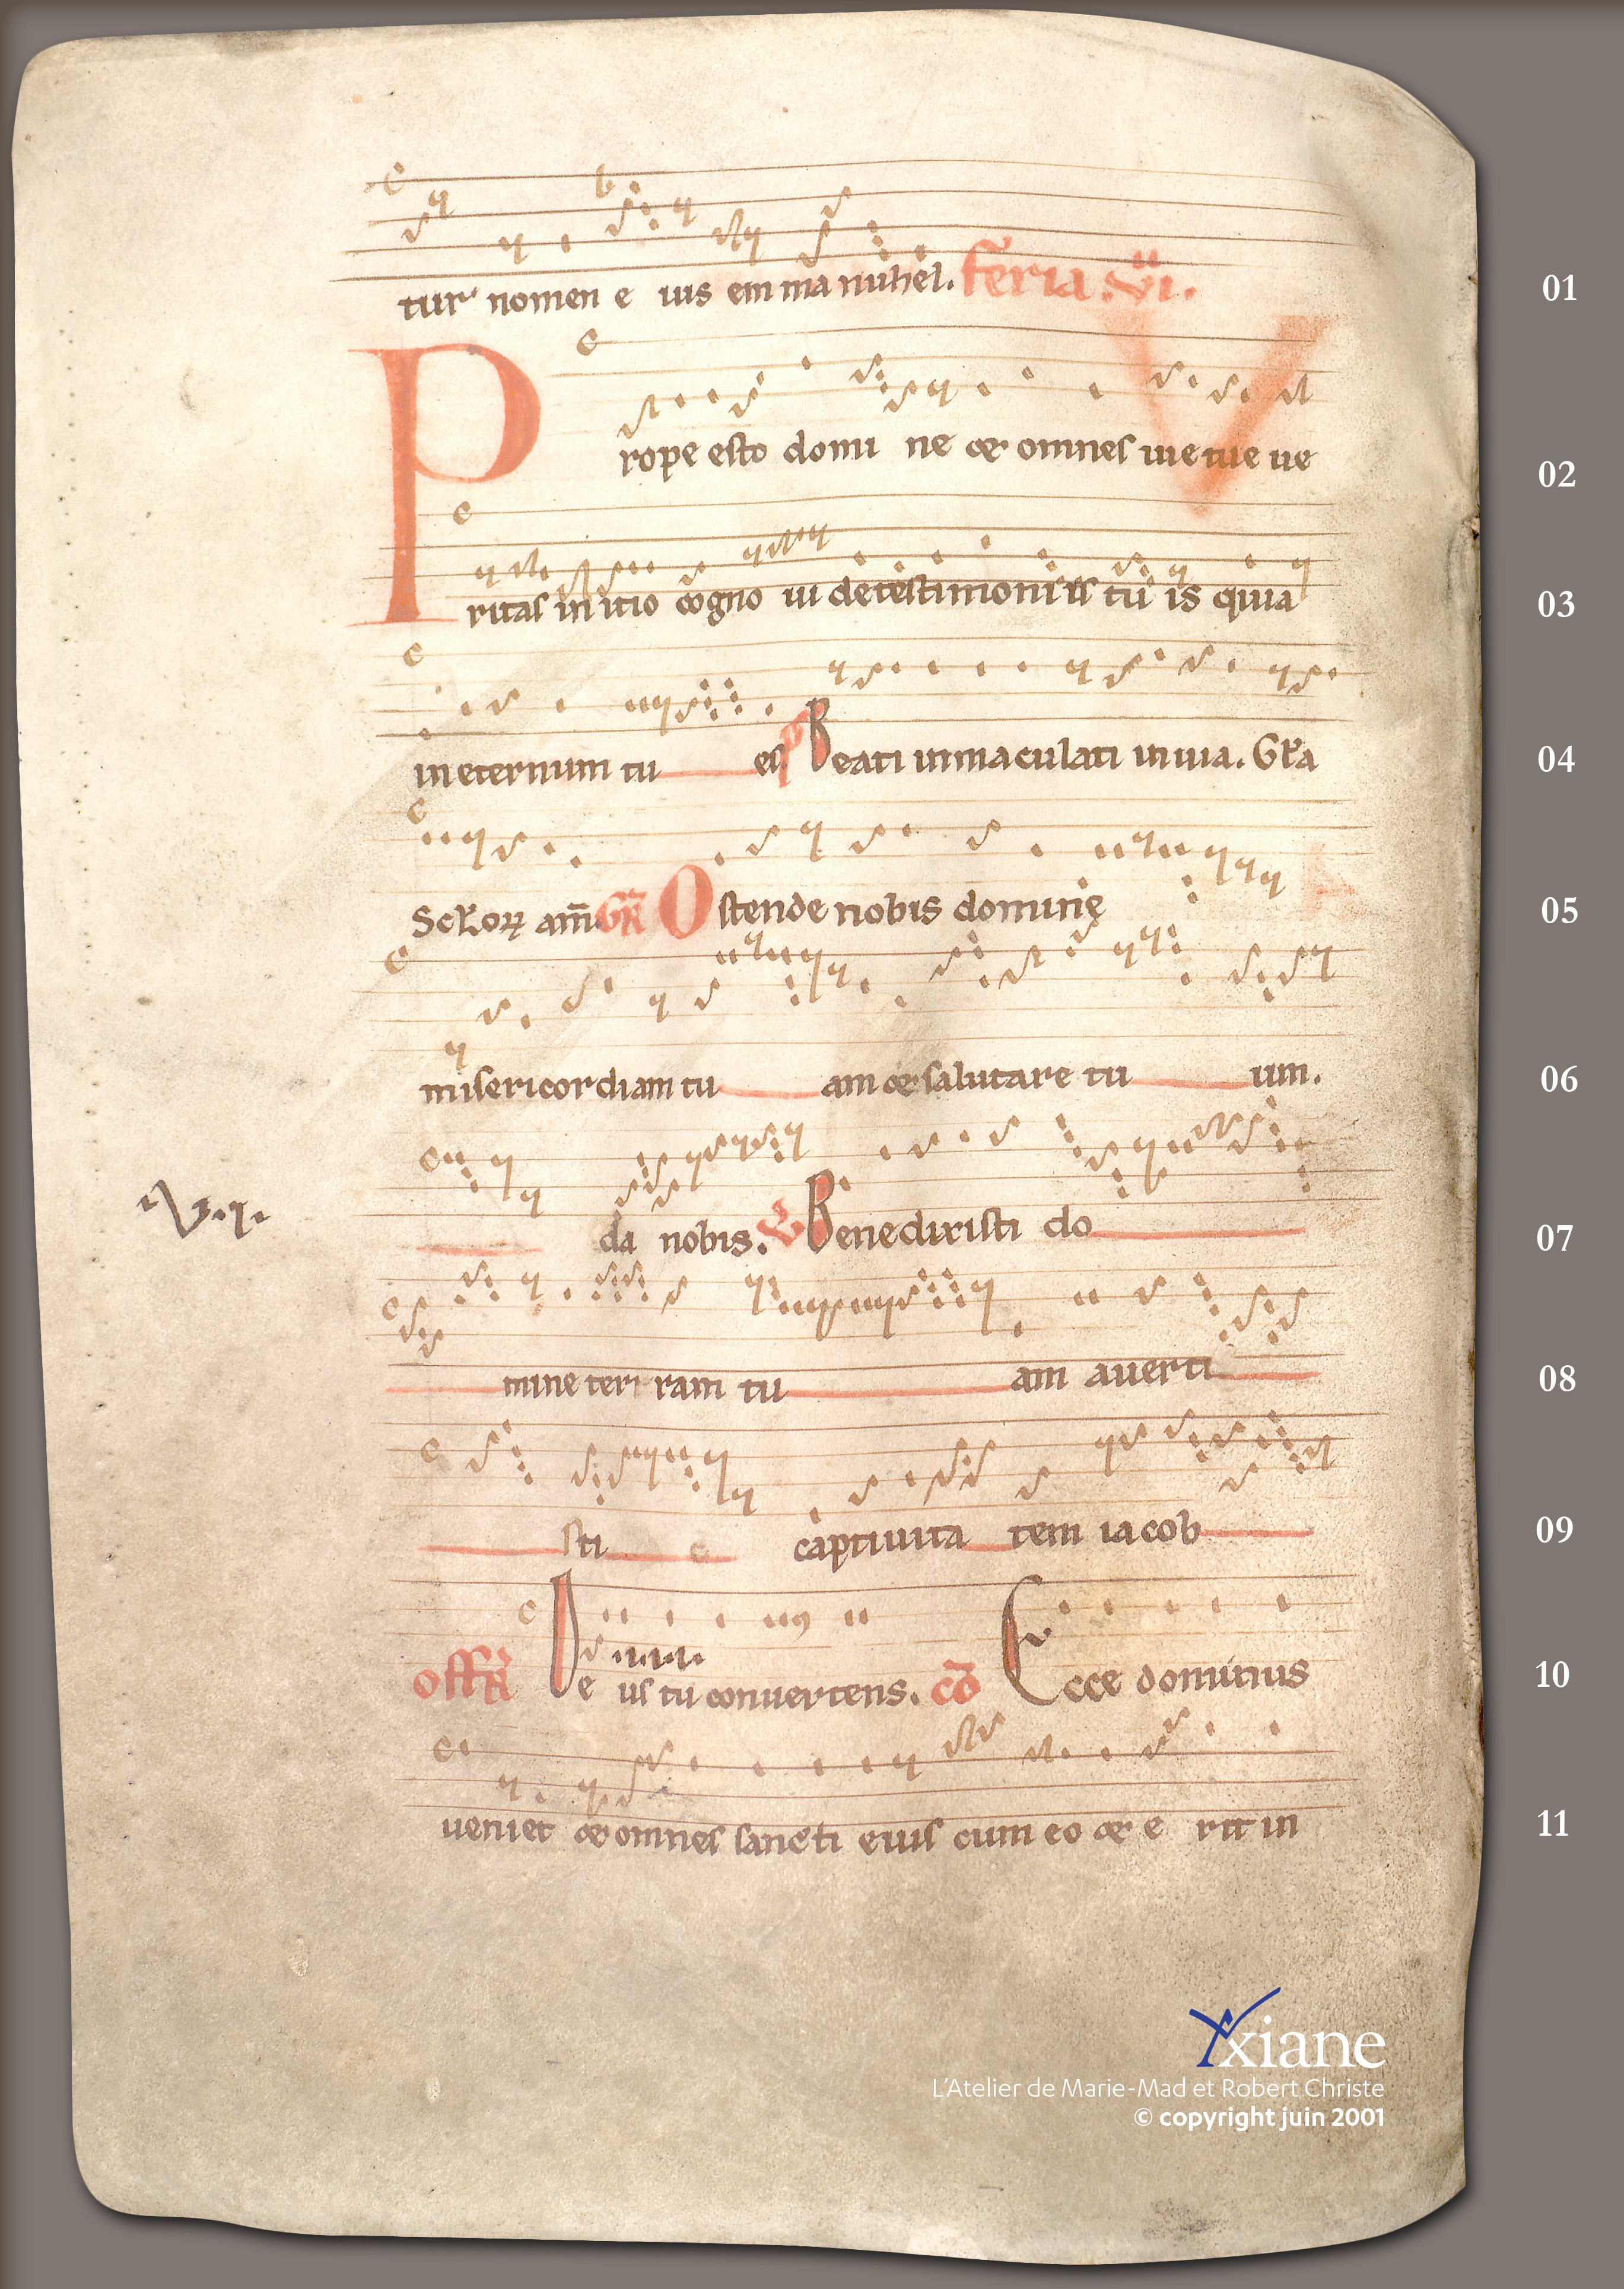 tur nomen e ius em ma nuhel. feria .vi. 01
Prope esto domi ne & omnes uie tue ue 02
ritas in itio cogno ui de testimoniis tu is quia 03
in eternum tu es. Beati inmaculati in uia. Gla 04
Sclorꝝ am̄. GR̄ Ostende nobis domine 05
misericordiam tu am & salutare tu um. 06
da nobis. V Benedixisti do 07
V.I.
mine terr ram tu am auerti 08
sti captiuita tem iacob 09
.iiii.
offR̄ De us tu conuertens. cō Ecce dominus 10
ueniet & omnes sancti eius cum eo & e rit in 11
Axiane
L'Atelier de Marie-Mad et Robert Christe
© copyright juin 2001